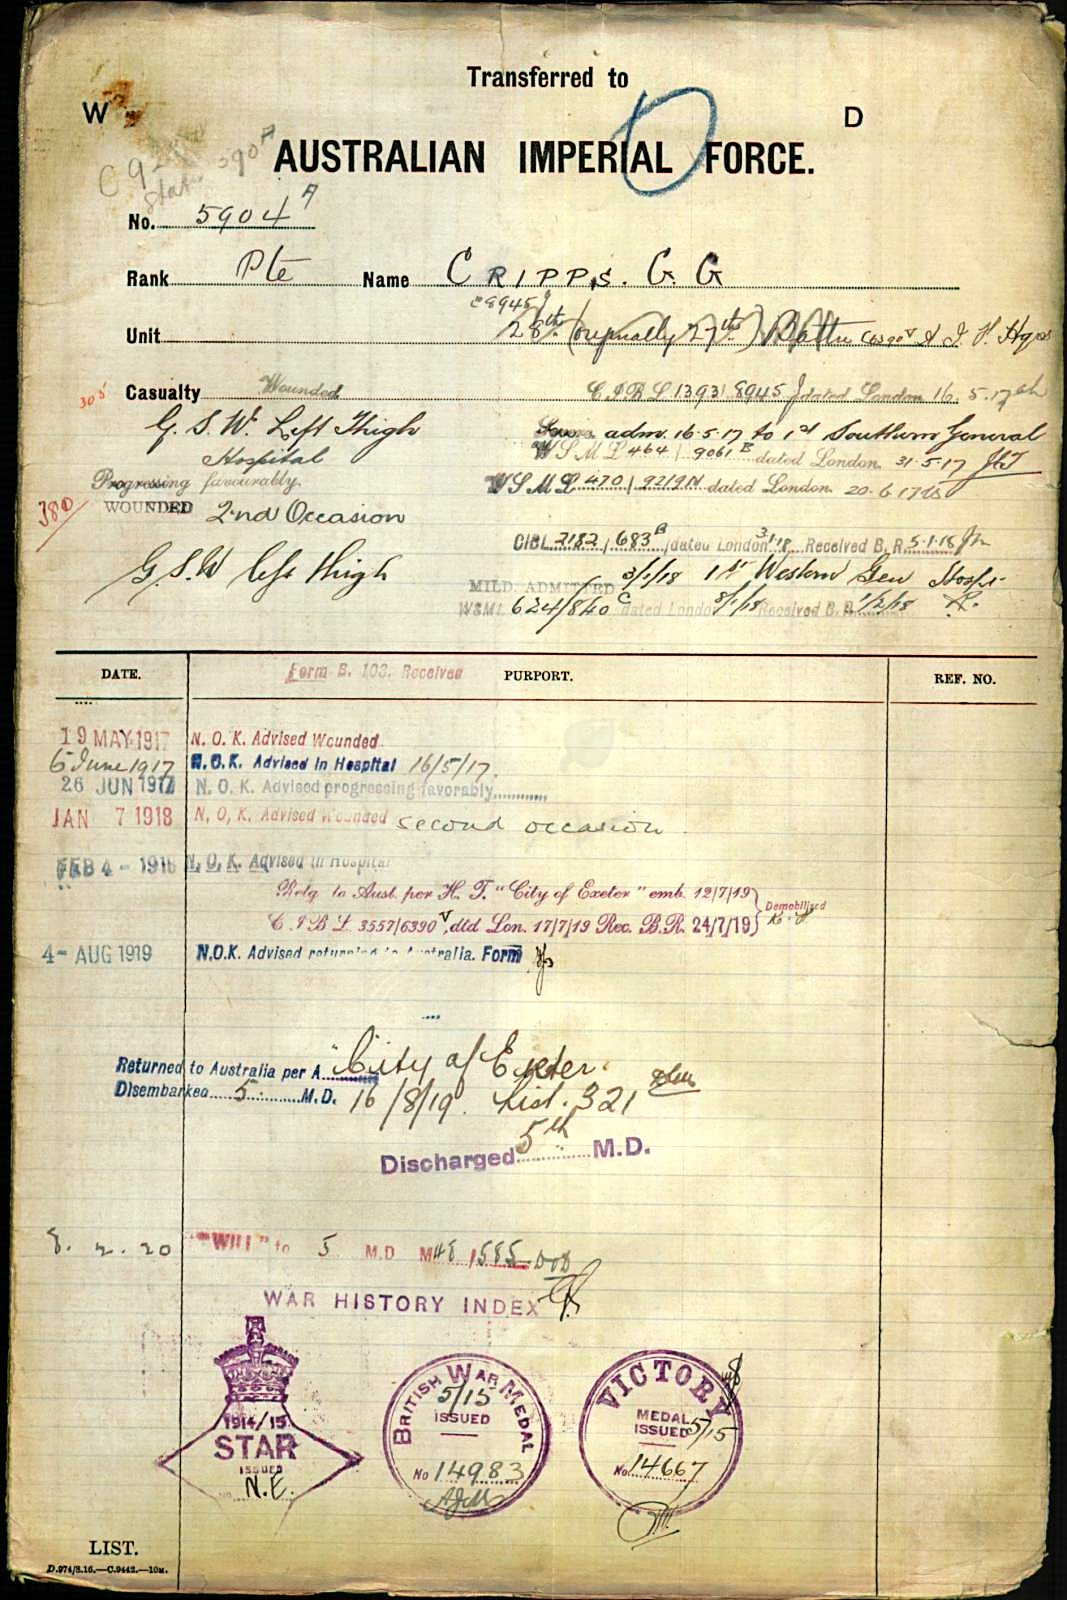 Transferred to
W D
AUSTRALIAN IMPERIAL FORCE.
C 9
No. 5904 A
Rank Pte Name CRIPPS. G. G
C8945J
Unit 28th (originally 27th) Battn A. I. F. Hqrs
305 Casualty Wounded C I B L 1393/8945 J dated London 16.5.17
G. S. W. Left Thigh adm. 16.5.17 to 1st Southern General
Hospital W S M L 464/9061 E dated London 31.5.17
Progressing favourably. W S M L 470/9219N dated London 20.6.17
380 WOUNDED 2nd Occasion
CIBL 2182/683 B dated London 3.1.18 Received B. R. 5.1.18
G. S. W left thigh MILD ADMITTED 3/1/18 1st Western Gen Hosp.
WSML 624/840 C dated London 8/1/18 Received B. R. 1/2/18
DATE. Form B. 103. Received PURPORT. REF. NO.
19 MAY 1917 N. O. K. Advised Wounded.
6 June 1917 N. O. K. Advised in Hospital 16/5/17.
26 JUN 1917 N. O. K. Advised progressing favorably
JAN 7 1918 N. O. K. Advised Wounded second occasion
FEB 4 - 1918 N. O. K. Advised in Hospital
Rtg to Aust. per H. T. "City of Exeter" emb. 12/7/19
C I B L 3557/6390 V, dtd Lon. 17/7/19 Rec. B.R. 24/7/19 Demobilised
4 - AUG 1919 N.O.K. Advised returning to Australia. Form
Returned to Australia per A "City of Exeter.
Disembarked 5 M.D. 16/8/19. List. 321
Discharged 5th M.D.
8. 2. 20 "Will" to 5 M.D M48/585
WAR HISTORY INDEX
1914/15 STAR ISSUED No. N.E.
BRITISH WAR MEDAL 5/15 ISSUED No 14983
VICTORY MEDAL ISSUED 5/15 No. 14667
LIST.
D.974/3.16.—C.9442.—10M.